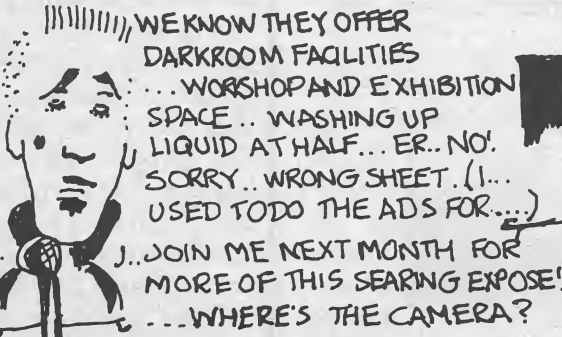 WE KNOW THEY OFFER
DARKROOM FACILITIES
... WORKSHOP AND EXHIBITION
SPACE.. WASHING UP
LIQUID AT HALF... ER.. NO!
SORRY.. WRONG SHEET. (I...
USED TO DO THE ADS FOR....)
J..JOIN ME NEXT MONTH FOR
MORE OF THIS SEARING EXPOSE!
....WHERE'S THE CAMERA?